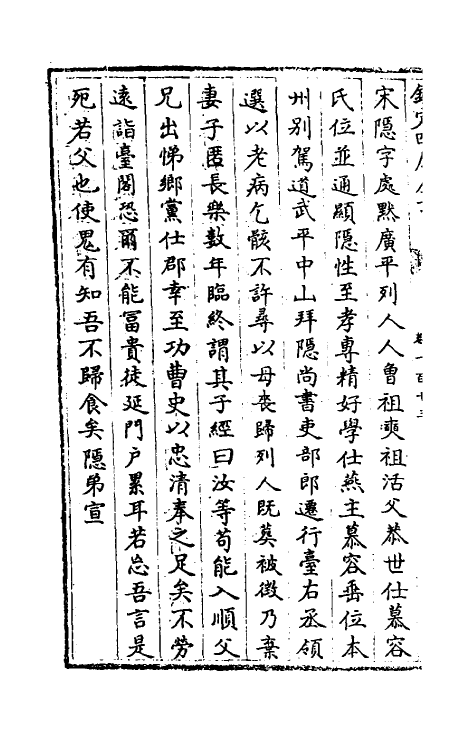 宋隱字處黙廣平列人人魯祖奭祖活父恭世仕慕容
氏位並通顯隱性至孝専精好學仕燕主慕容垂位本
州別駕道武平中山拜隱尚書吏部郎遷行臺右丞領
選以老病乞骸不許尋以母丧歸列人既葬被徴乃棄
妻子匿長樂數年臨終謂其子經曰汝等茍能入順父
兄出悌鄉黨仕郡幸至功曹史以忠清奉之足矣不勞
逺詣臺閣恐爾不能冨貴徒延門户累耳若忘吾言是
死若父也使鬼有知吾不歸食矣隱弟宣